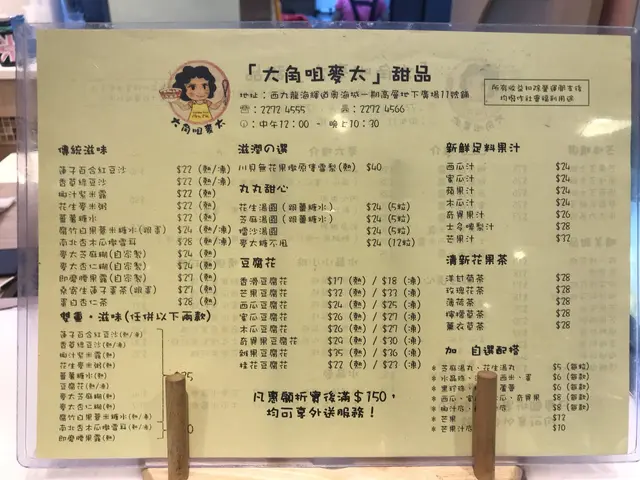 「大角咀麥太」甜品
地址：西九龍海輝道奧海城一期高層地下廣場11號舖
2272 4555 2272 4566
中午12:00 - 晚上10:30
所有收益扣除營運開支後
均撥作社會福利用途
大角咀麥太
傳統滋味
蓮子百合紅豆沙 $22 (熱/凍)
香草綠豆沙 $24 (熱/凍)
椰汁紫米露 $22 (熱)
花生麥米粥 $22 (熱)
蕃薯糖水 $22 (熱)
腐竹白果薏米糖水(跟蛋) $24 (熱/凍)
南北杏木瓜燉雪耳 $28 (熱/凍)
麥太芝麻糊(自家製) $24 (熱)
麥太杏仁糊(自家製) $24 (熱)
即磨腰果露(自家製) $27 (熱)
桑寄生蓮子蛋茶(跟蛋) $27 (熱)
蛋白杏仁茶 $28 (熱)
雙重・滋味(任拼以下兩款)
蓮子百合紅豆沙(熱/凍)
香草綠豆沙(熱/凍)
椰汁紫米露(熱)
花生麥米粥(熱)
蕃薯糖水(熱)
豆腐花(熱/凍)
麥太芝麻糊(熱)
麥太杏仁糊(熱)
腐竹白果薏米糖水(熱/凍)
南北杏木瓜燉雪耳(熱/凍)
即磨腰果露(熱)
滋潤の選
川貝無花果燉原隻雪梨(熱) $40
丸丸甜心
花生湯圓（跟薑糖水） $24 (5粒)
芝麻湯圓（跟薑糖水） $24 (5粒)
擂沙湯圓 $24 (5粒)
麥太糖不甩 $24 (12粒)
豆腐花
香滑豆腐花 $17 (熱) / $18 (凍)
芒果豆腐花 $32 (熱) / $33 (凍)
西瓜豆腐花 $24 (熱) / $25 (凍)
蜜瓜豆腐花 $26 (熱) / $27 (凍)
木瓜豆腐花 $26 (熱) / $27 (凍)
奇異果豆腐花 $29 (熱) / $30 (凍)
雜果豆腐花 $35 (熱) / $36 (凍)
桂花豆腐花 $22 (熱) / $23 (凍)
凡惠顧折實後滿$150，
均可享外送服務！
新鮮足料果汁
西瓜汁 $24
蜜瓜汁 $24
蘋果汁 $24
木瓜汁 $24
奇異果汁 $26
士多啤梨汁 $28
芒果汁 $32
清新花果茶
洋甘菊茶 $28
玫瑰花茶 $28
薄荷茶 $28
檸檬草茶 $28
薰衣草茶 $28
加 自選配搭
* 芝麻湯丸、花生湯丸 $5 (每粒)
西米、蛋 $6 (每款)
* 黑珍珠 蘆薈 $6 (每款)
* 西瓜、蜜 瓜、奇異果 $8 (每款)
* 椰汁 $8 (每款)
* 芒果 $12
* 芒果汁 $10